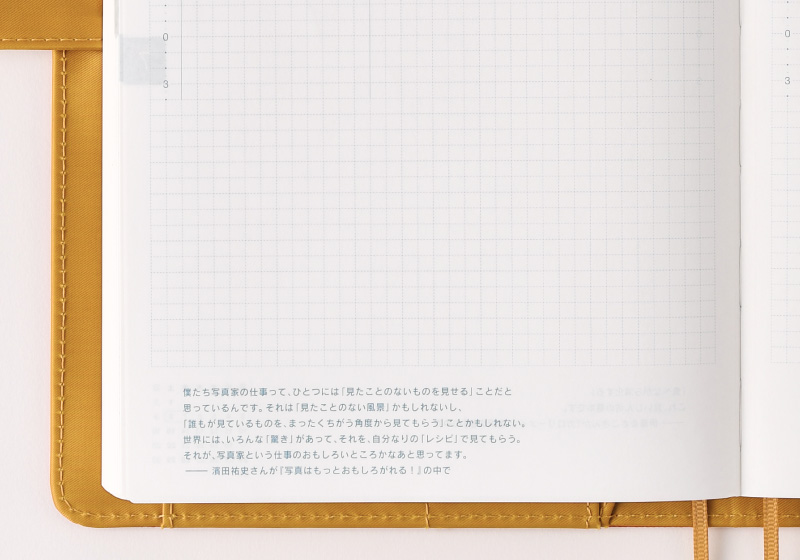 0
3
0
3
僕たち写真家の仕事って、ひとつには「見たことのないものを見せる」ことだと
思っているんです。それは「見たことのない風景」かもしれないし、
「誰もが見ているものを、まったくちがう角度から見てもらう」ことかもしれない。
世界には、いろんな「驚き」があって、それを、自分なりの「レシピ」で見てもらう。
それが、写真家という仕事のおもしろいところかなあと思ってます。
—— 濱田祐史さんが『写真はもっとおもしろがれる！』の中で